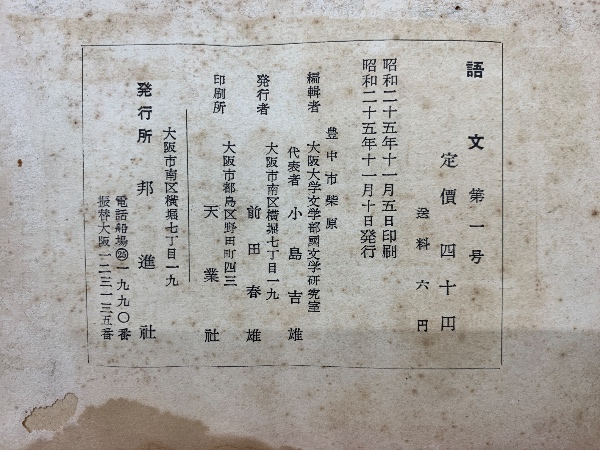 語文 第一号
定價 四十円
送料 六円
昭和二十五年十一月五日印刷
昭和二十五年十一月十日発行
豊中市柴原
編輯者 大阪大学文学部國文学研究室
代表者 小島吉雄
大阪市南区横堀七丁目一九
発行者 前田春雄
大阪市都島区野田町四三
印刷所 天業社
大阪市南区横堀七丁目一九
発行所 邦進社
電話船場㉕一九九〇番
振替大阪一二三一三五番